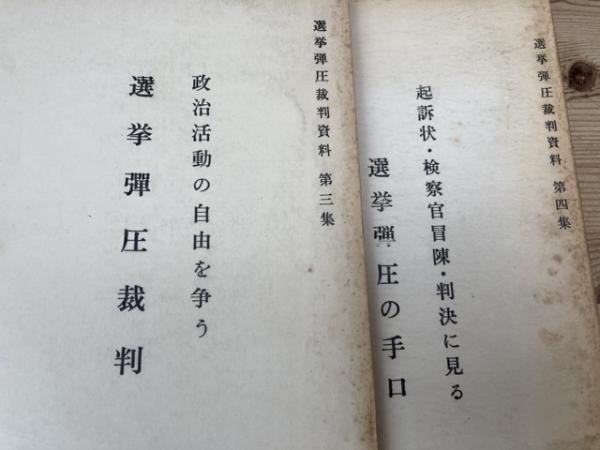 選挙弾圧裁判資料 第三集
政治活動の自由を争う
選挙彈圧裁判
選挙弾圧裁判資料 第四集
起訴状・検察官冒陳・判決に見る
選挙弾圧の手口